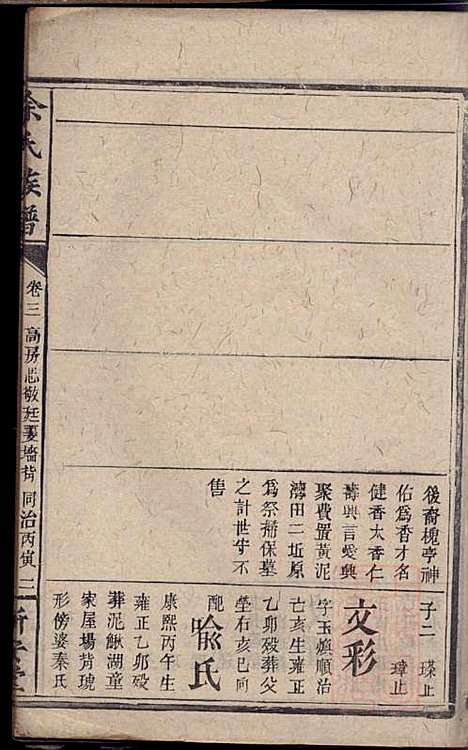 後裔槐亭神
佑爲香才名
健香太香仁
壽興言愛興
聚費置黃泥
灣田二坵原
爲祭掃保墓
之計世守不
售
子二 瑛止
璋止
文彩
字玉 順治
己亥生雍正
乙卯殁葬父
塋右亥巳向
配
喩氏
康熙丙午生
雍正乙卯殁
葬泥鰍湖童
家屋場背琥
形傍婆秦氏
氏族譜
卷三 高房思敬廷 墻背 同治丙寅 二